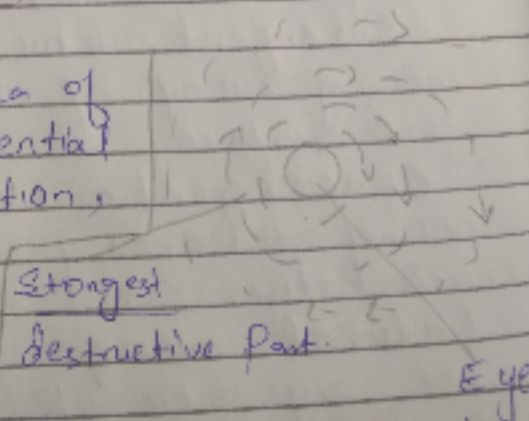 a of
ential
tion,
Stongest
destructive Part.
Eye